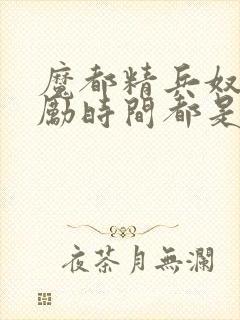 魔都精兵奴
勵時間都是
夜茶月無瀾